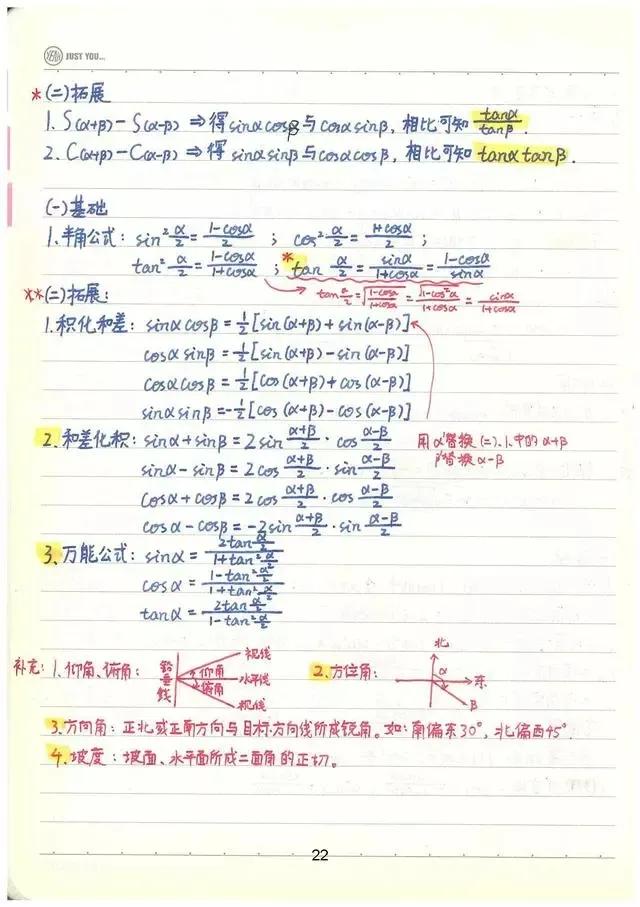 YEAH JUST YOU...
*(二)拓展
1. S(α+β)-S(α-β) ⇒ 得 sinαcosβ 与 cosαsinβ, 相比可知 tanα/tanβ.
2. C(α+β)-C(α-β) ⇒ 得 sinαsinβ 与 cosαcosβ, 相比可知 tanαtanβ.
(一)基础
1. 半角公式: sin²α/2 = (1-cosα)/2 ; cos²α/2 = (1+cosα)/2 ;
tan²α/2 = (1-cosα)/(1+cosα) ; *tan α/2 = sinα/(1+cosα) = (1-cosα)/sinα
**(二)拓展: tan α/2 = √((1-cosα)/(1+cosα)) = √(1-cos²α)/(1+cosα) = sinα/(1+cosα)
1. 积化和差: sinαcosβ = ½[sin(α+β)+sin(α-β)]
cosαsinβ = ½[sin(α+β)-sin(α-β)]
cosαcosβ = ½[cos(α+β)+cos(α-β)]
sinαsinβ = -½[cos(α+β)-cos(α-β)]
2. 和差化积: sinα+sinβ = 2sin (α+β)/2 · cos (α-β)/2
用α'替换(二).1.中的α+β
sinα-sinβ = 2cos (α+β)/2 · sin (α-β)/2
β'替换α-β
cosα+cosβ = 2cos (α+β)/2 · cos (α-β)/2
cosα-cosβ = -2sin (α+β)/2 · sin (α-β)/2
3. 万能公式: sinα = 2tan α/2 / (1+tan²α/2)
cosα = (1-tan²α/2)/(1+tan²α/2)
tanα = 2tan α/2 / (1-tan²α/2)
补充: 1. 仰角、俯角: 铅垂线 仰角 俯角 视线 水平线 视线
2. 方位角: 北 东 α β
3. 方向角: 正北或正南方向与目标方向线所成锐角。如: 南偏东30°, 北偏西45°.
4. 坡度: 坡面、水平面所成二面角的正切。
22